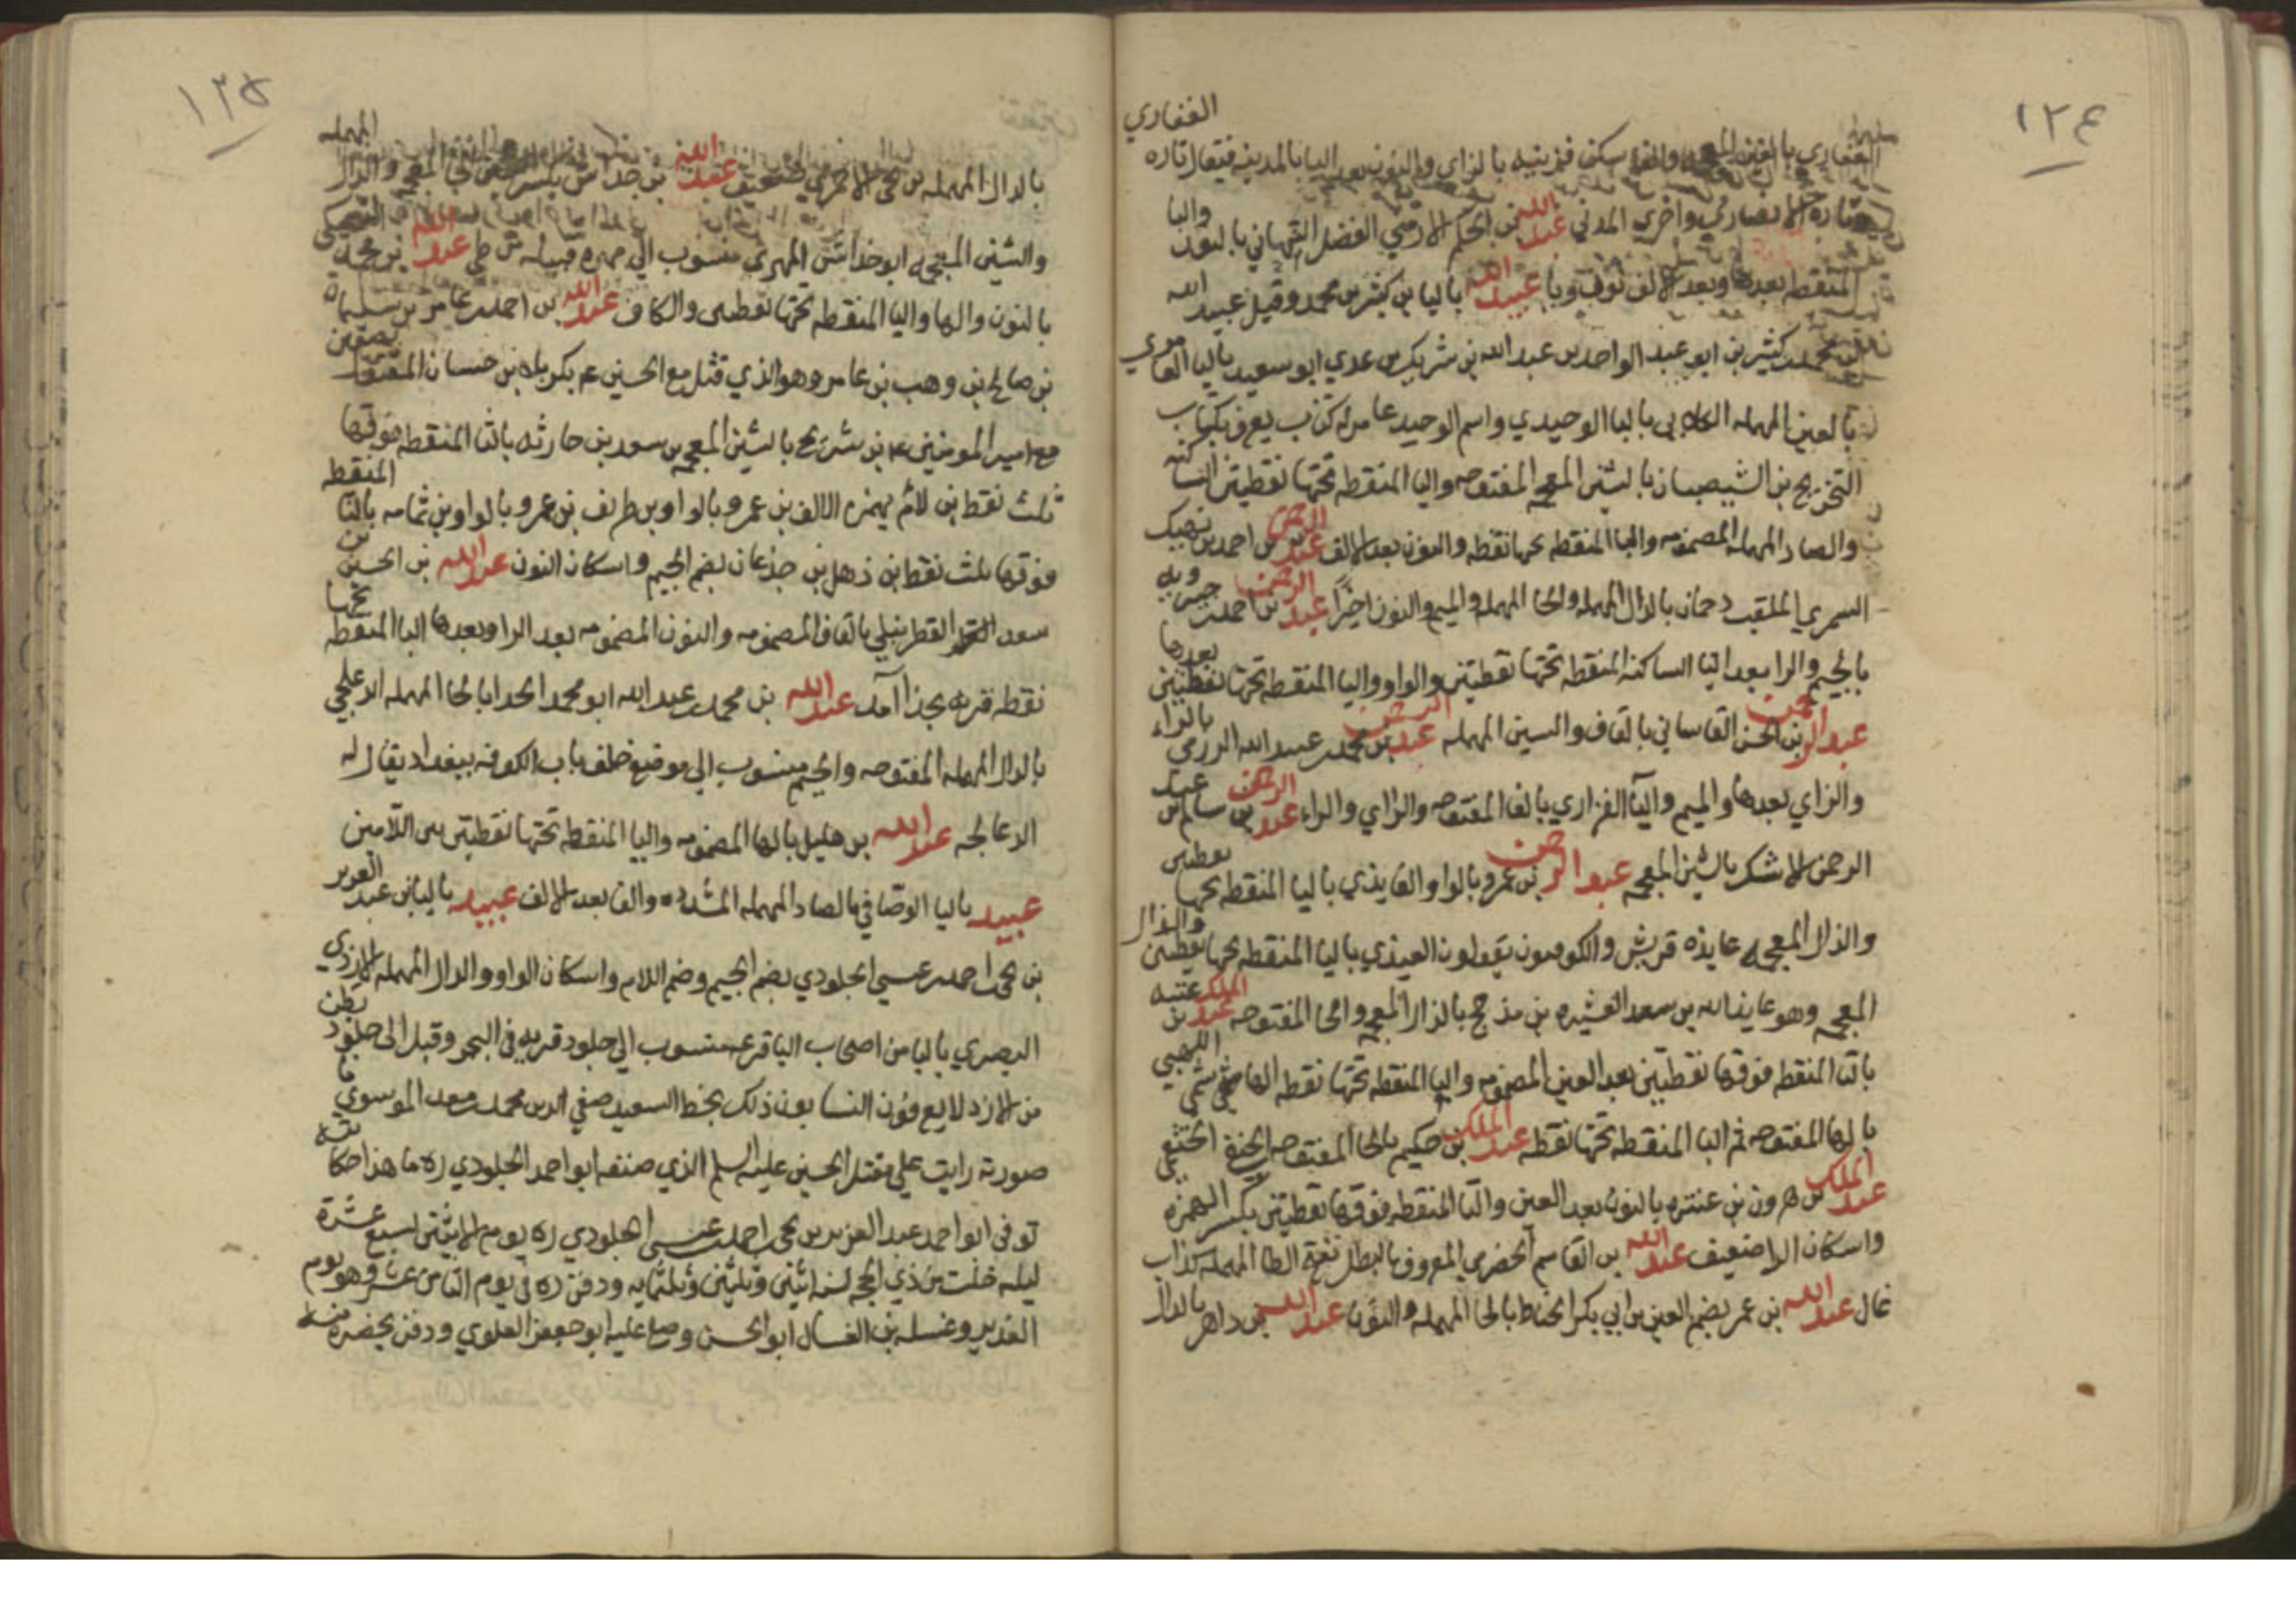 ١٢٤
الغفاري
الغفاري بالغين المعجمه والفاء سكن مزينه بالزاي والنون بعد اليا بالمدينه فيقال تاره
وتاره الانصاري واخري المدني عبد الله بن الحكم الارمني الفضل النبهاني بالنون والبا
المنقطه بعدها وبعد الالف نون ويا عبيد الله باليا بن كثير بن محمد وقيل عبيد الله
بن محمد بن كثير بن ابو عبد الواحد بن عبد الله بن شريك بن عدي ابو سعيد باليا العامري
بالعين المهمله الكلابي باليا الوحيدي واسم الوحيد عامر له كتاب يعرف بكتاب
التخريج بن الشيصبان بالشين المعجمه المفتوحه واليا المنقطه تحتها نقطتين الساكنه
والصاد المهمله المضمومه والبا المنقطه تحتها نقطه والنون بعد الالف عبد الرحمن بن احمد بن نهيك
السمري الملقب دحمان بالدال المهمله والحا المهمله والميم والنون اخيرًا عبد الرحمن بن احمد بن جبرويه
بالجيم والرا بعد اليا الساكنه المنقطه تحتها نقطتين والواو واليا المنقطه تحتها نقطتين بعدها
عبد الرحمن بن الحسن القاساني بالقاف والسين المهمله عبد الرحمن بن محمد بن عبيد الله الرزمي بالراء
والزاي بعدها والميم واليآ الفزاري بالفا المفتوحه والزاي والراء عبد الرحمن بن سالم بن عبد
الرحمن الاشكر بالشين المعجمه عبد الرحمن بن عمرو بالواو العايذي باليا المنقطه تحتها نقطتين
والذال المعجمه عايذه قريش والكوفيون يقولون العيذي باليا المنقطه تحتها نقطتين والذال
المعجمه وهو عايذ الله بن سعد العشيره بن مذحج بالذال المعجمه والحا المفتوحه عبد الملك بن عتبه
بالتا المنقطه فوقها نقطتين بعد العين المضمومه واليا المنقطه تحتها نقطه الهاشمي اللهبي
بالها المفتوحه ثم البا المنقطه تحتها نقطه عبد الملك بن حكيم بالحا المفتوحه الخثعمي
عبد الملك بن هرون بن عنتره بالنون بعد العين والتا المنقطه فوقها نقطتين بكسر الهمزه
واسكان اليا ضعيف عبد الله بن القاسم الحضرمي المعروف بالبطل بفتح الطا المهمله كذاب
غال عبد الله بن عمر بضم العين بن ابي بكر الحناط بالحا المهمله والنون عبد الله بن داهر بالدال
١٢٥
بالدال المهمله بن يحيى الاحمري ضعيف عبد الله بن خداش بكسر الخا المعجمه والدال المهمله
والشين المعجمه ابو خداش المهري منسوب الي مهره قبيله من طي عبد الله بن محمد النهيكي
بالنون والها واليا المنقطه تحتها نقطتين والكاف عبد الله بن احمد بن عامر بن سليمان
بن صالح بن وهب بن عامر وهو الذي قتل مع الحسين ع بكربلا بن حسان المقتول بصفين
مع امير المومنين ع بن شريح بالشين المعجمه بن سعد بن حارثه بالثا المنقطه فوقها
ثلث نقط بن لأم بهمزه الالف بن عمرو بالواو بن طريف بن عمرو بالواو بن ثمامه بالثا المنقطه
فوقها ثلث نقط بن ذهل بن جذعان بضم الجيم واسكان النون عبد الله بن الحسين بن
سعد القطربلي بالقاف المضمومه والنون المضمومه بعد الرا وبعدها البا المنقطه تحتها
نقطه قريه بحذا آمد عبد الله بن محمد بن عبد الله ابو محمد الحذا بالحا المهمله الدعلجي
بالدال المهمله المفتوحه والجيم منسوب الي موضع خلف باب الكوفه ببغداد يقال له
الدعالجه عبد الله بن هليل بالها المضمومه واليا المنقطه تحتها نقطتين بين اللامين
عبيد باليا الوصّافي بالصاد المهمله المشدده والفا بعد الالف عبيد باليا بن عبد العزيز
بن يحيى بن احمد بن عيسي الجلودي بضم الجيم وضم اللام واسكان الواو والدال المهمله الازدي
البصري باليا من اصحاب الباقر ع منسوب الي جلود قريه في البحر وقيل الى جلود بطن
من الازد لا يعرفون النسابون ذلك بخط السعيد صفي الدين محمد بن معد الموسوي ما
صورته رايت علي مقتل الحسين عليه السلم الذي صنفه ابو احمد الجلودي ره ما هذا حكايته
توفي ابو احمد عبد العزيز بن يحيى بن احمد بن عيسى الجلودي ره يوم الاثنين لسبع عشرة
ليله خلت من ذي الحجه لسنه اثنين وثلثين وثلثمايه ودفن ره في يوم الثامن عشر وهو يوم
الغدير وغسله بن الغسال ابو الحسن وصلى عليه ابو جعفر العلوي ودفن بحضرة